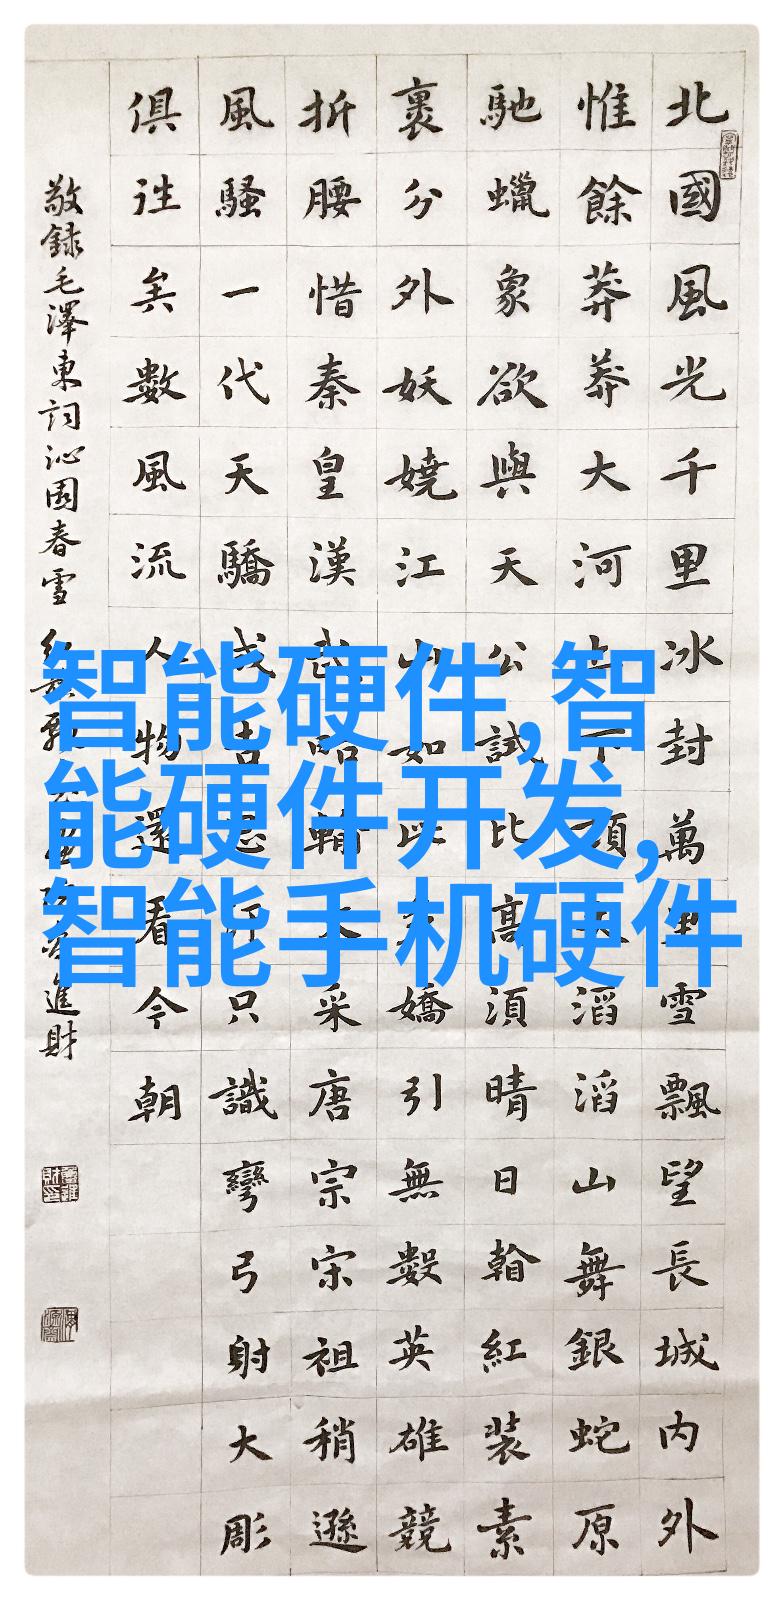 北國風光千里冰封萬里雪飄望長城内外
惟餘莽莽大河上下頓失滔滔山舞銀蛇原
馳蠟象欲與天公試比高須晴日翰紅裝素
裹分外妖嬈江山如此多嬌引無數英雄競
折腰惜秦皇漢武略輸文采唐宗宋祖稍遜
風騷一代天驕成吉思汗只識彎弓射大彫
俱往矣數風流人物還看今朝
敬録毛澤東詞沁園春雪
進財
智能硬件,智
能硬件开发,
智能手机硬件